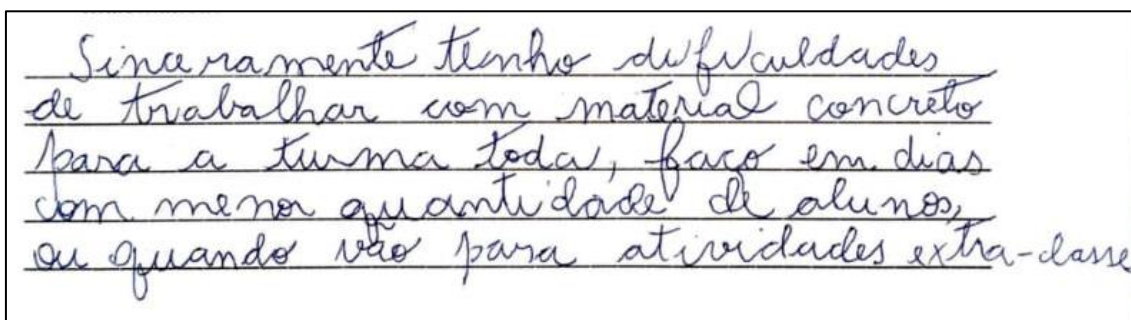 Sinceramente tenho dificuldades
de trabalhar com material concreto
para a turma toda, faço em dias
com menor quantidade de alunos,
ou quando vão para atividades extra-classe